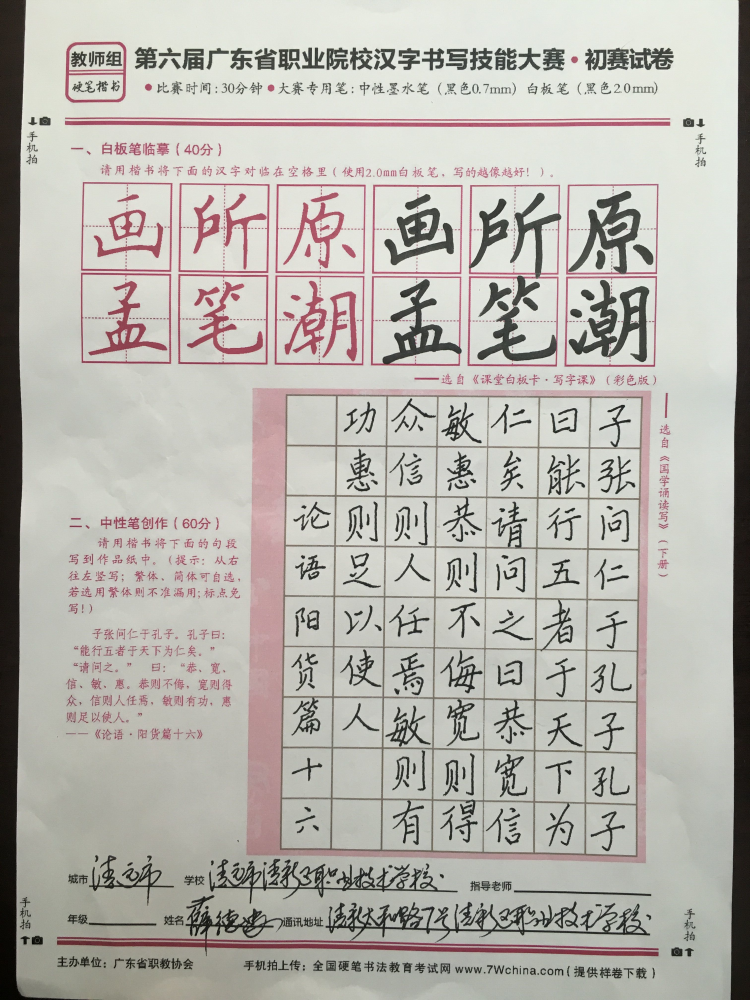 教师组
硬笔楷书
第六届广东省职业院校汉字书写技能大赛·初赛试卷
●比赛时间:30分钟●大赛专用笔:中性墨水笔(黑色0.7mm) 白板笔(黑色2.0mm)
手机拍
手机拍
一、白板笔临摹(40分)
请用楷书将下面的汉字对临在空格里(使用2.0mm白板笔,写的越像越好!)。
画所原画所原
孟笔潮孟笔潮
——选自《课堂白板卡·写字课》(彩色版)
——选自《国学诵读写》(下册)
二、中性笔创作(60分)
请用楷书将下面的句段
写到作品纸中。(提示:从右
往左竖写;繁体、简体可自选,
若选用繁体则不准漏用;标点免
写!)
子张问仁于孔子。孔子曰:
“能行五者于天下为仁矣。”
“请问之。” 曰:“恭、宽、
信、敏、惠。恭则不侮,宽则得
众,信则人任焉,敏则有功,惠
则足以使人。”
——《论语·阳货篇十六》
子张问仁于孔子孔子
曰能行五者于天下为
仁矣请问之曰恭宽信
敏惠恭则不侮宽则得
众信则人任焉敏则有
功惠则足以使人
论语阳货篇十六
城市 清远市 学校 清远市清新区职业技术学校 指导老师
年级 姓名 薛德 通讯地址 清新太和路7号清新区职业技术学校
手机拍
手机拍
主办单位:广东省职教协会 手机拍上传:全国硬笔书法教育考试网 www.7Wchina.com(提供样卷下载)